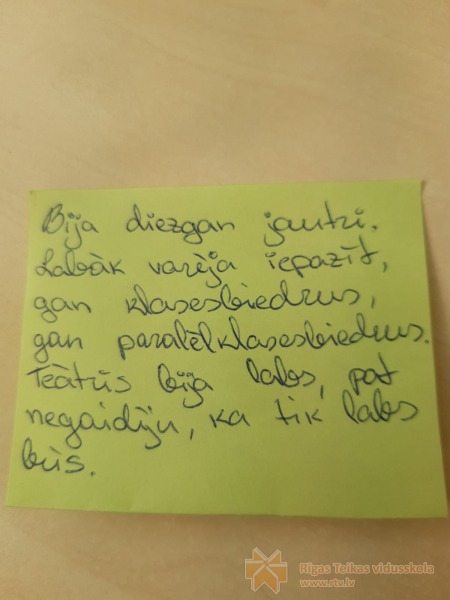 Bija diezgan jautri.
Labāk varēja iepazīt,
gan klasesbiedrus,
gan paralēlklasesbiedrus.
Teātris bija labs, pat
negaidīju, ka tik labs
būs.
Rīgas Teikas vidusskola
www.rtv.lv